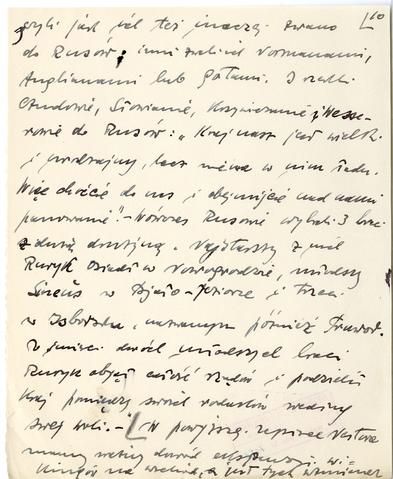 czyli jak ich też inaczej zwano
do Rusów; inni zwali się Normanami,
Anglianami lub Gotami. I rzekli
Czudowie, Słowianie, Krzywiczanie i Wesso-
wie do Rusów: "Kraj nasz jest wielki
i urodzajny, lecz niéma w nim ładu.
Więc chodźcie do nas i obejmijcie nad nami
panowanie". - Wówczas Rusowie wybrali 3 braci
z dużą drużyną. Najstarszy z nich
Ruryk osiadł w Nowogrodzie, młodszy
Sineus w Biało-Jeziorze i trzeci
w Izborsku, nazwanym później Truwor.
Po śmierci dwóch młodszych braci
Ruryk objął całość rządów i podzielił
Kraj pomiędzy swoich
swej woli. - W powyższej zapisce Nestora
mamy ważny dowód ekspansji Wi-
kingów na wschód, a jest tych